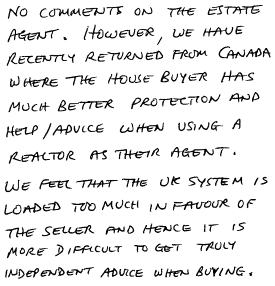 NO COMMENTS ON THE ESTATE
AGENT. HOWEVER, WE HAVE
RECENTLY RETURNED FROM CANADA
WHERE THE HOUSE BUYER HAS
MUCH BETTER PROTECTION AND
HELP/ADVICE WHEN USING A
REALTOR AS THEIR AGENT.
WE FEEL THAT THE UK SYSTEM IS
LOADED TOO MUCH IN FAVOUR OF
THE SELLER AND HENCE IT IS
MORE DIFFICULT TO GET TRULY
INDEPENDENT ADVICE WHEN BUYING.